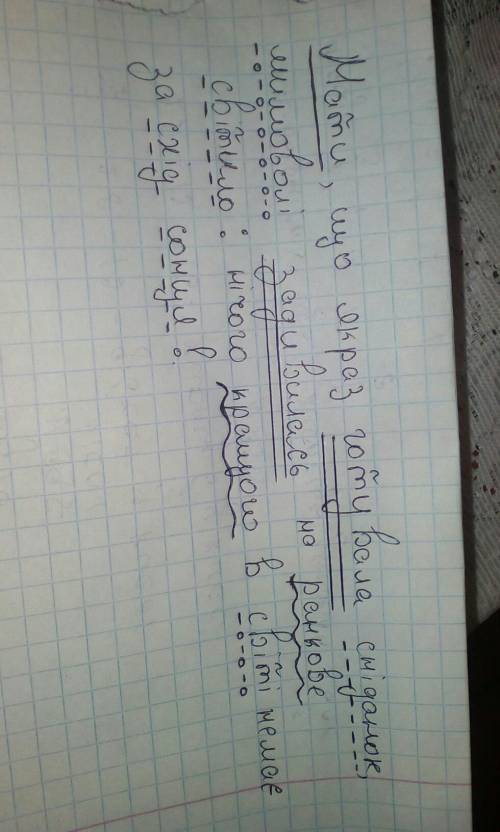 Мати, що якраз готувала сніданок,
мимоволі задивилась на ранкове
світило: нічого кращого в світі немає
за схід сонця.